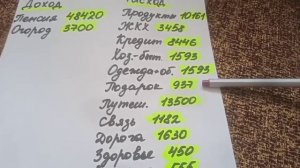 Доход
Пенсия 48420
Огород 3700
Расход
Продукты 10161
ЖКХ 3458
Кредит 8446
Хоз.-быт. 1593
Одежда+об. 1593
Подарок 937
Путеш. 13500
Связь 1182
Дорога 1630
Здоровье 450